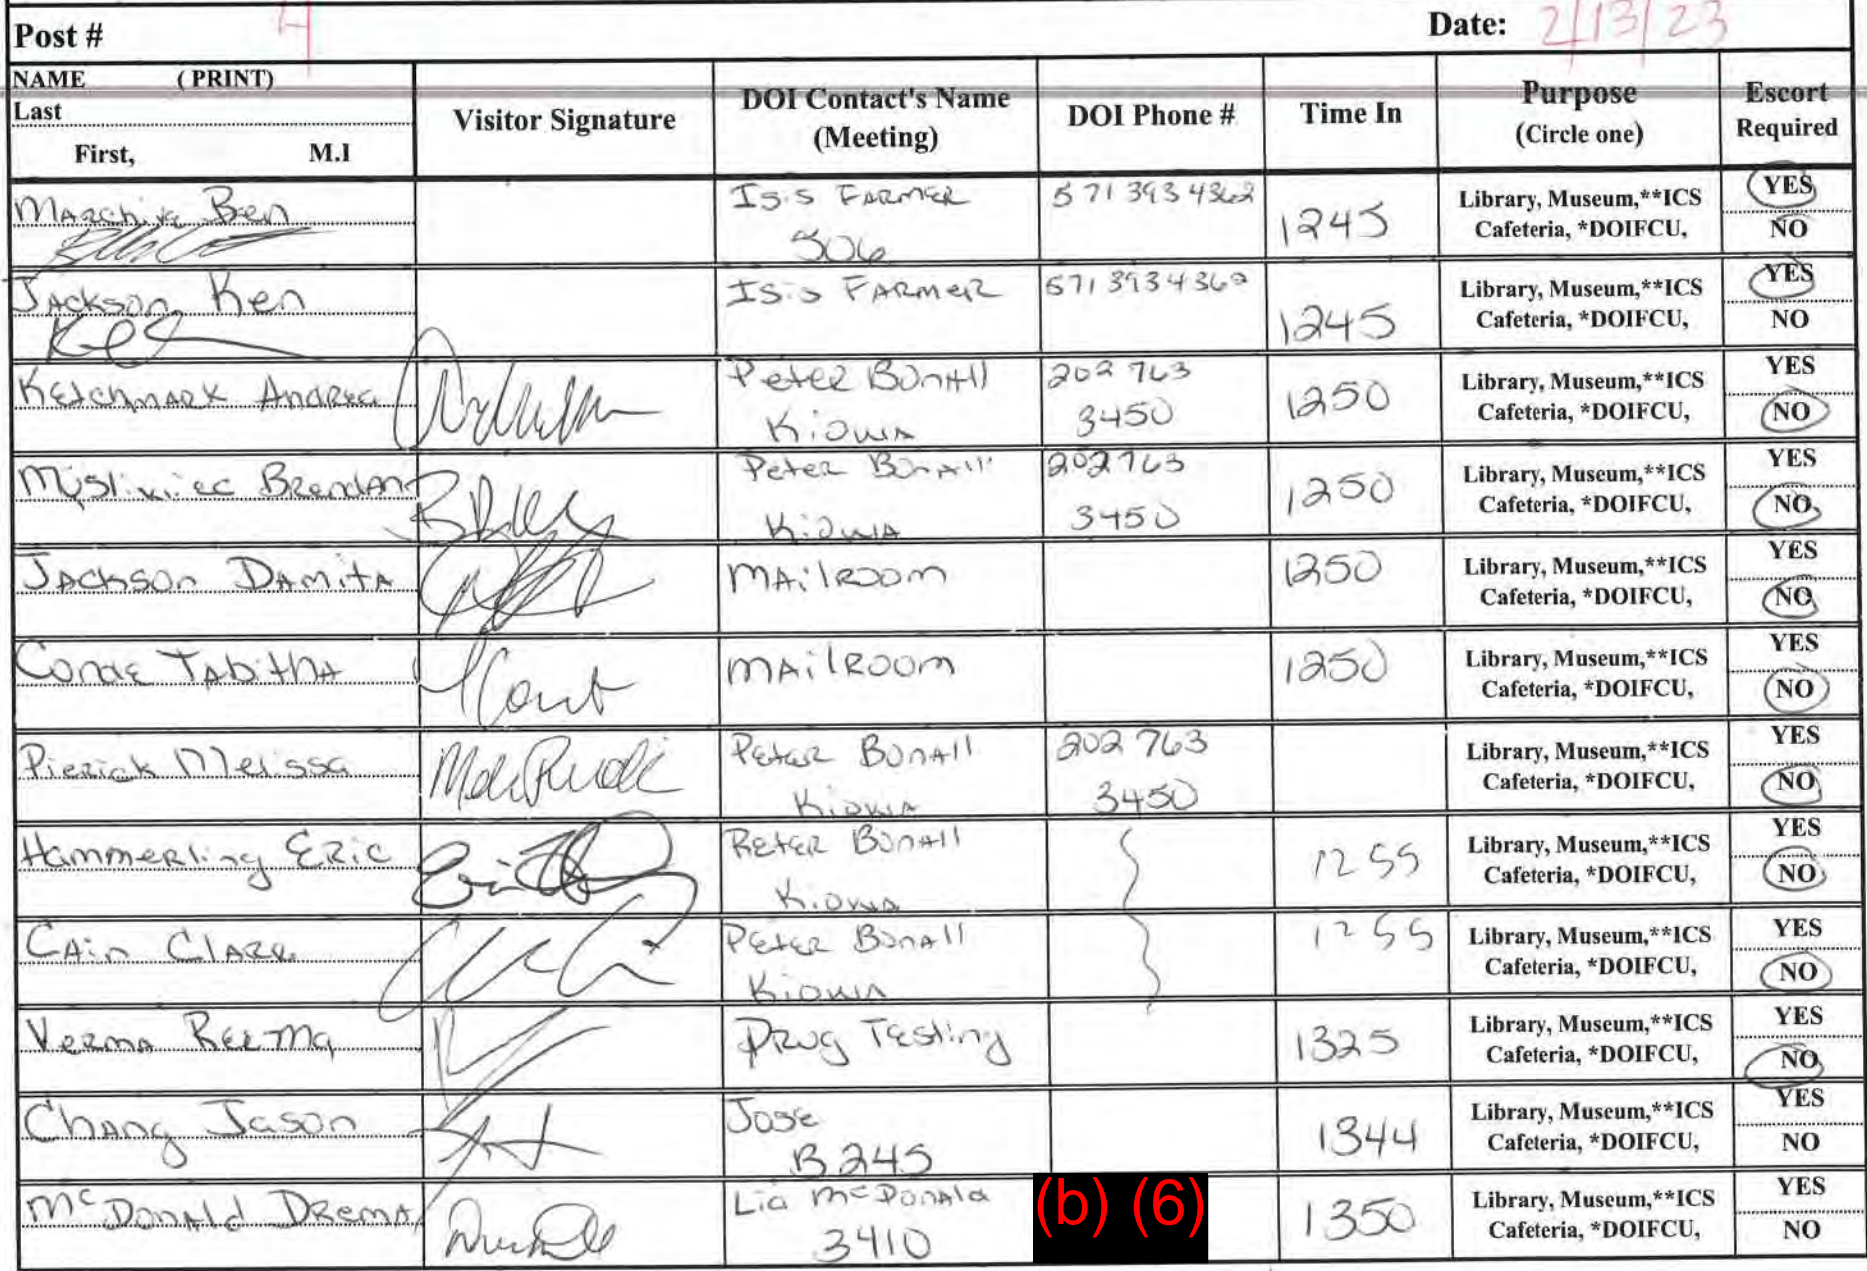 Post # 4 Date: 2/13/23
NAME (PRINT)
Last
First, M.I
Visitor Signature
DOI Contact's Name
(Meeting)
DOI Phone #
Time In
Purpose
(Circle one)
Escort
Required
Ben
Isis FARMER
506
571 393 4362
1245
Library, Museum,**ICS
Cafeteria, *DOIFCU,
YES
NO
JACKSON Ken
Isis FARMER
571 393 4362
1245
Library, Museum,**ICS
Cafeteria, *DOIFCU,
YES
NO
Ketchmark Andrea
Peter Bonall
Kiowa
202 763
3450
1250
Library, Museum,**ICS
Cafeteria, *DOIFCU,
YES
NO
Mysliwiec Brendan
Peter Bonall
Kiowa
202 763
3450
1250
Library, Museum,**ICS
Cafeteria, *DOIFCU,
YES
NO
JACKSON DAMITA
MAilROOM
1250
Library, Museum,**ICS
Cafeteria, *DOIFCU,
YES
NO
TAbithA
MAilROOM
1250
Library, Museum,**ICS
Cafeteria, *DOIFCU,
YES
NO
Melissa
Peter Bonall
Kiowa
202 763
3450
Library, Museum,**ICS
Cafeteria, *DOIFCU,
YES
NO
Hammerling Eric
Peter Bonall
Kiowa
1255
Library, Museum,**ICS
Cafeteria, *DOIFCU,
YES
NO
CAin
Peter Bonall
Kiowa
1255
Library, Museum,**ICS
Cafeteria, *DOIFCU,
YES
NO
Verma
Drug Testing
1325
Library, Museum,**ICS
Cafeteria, *DOIFCU,
YES
NO
Chang Jason
Jose
B245
1344
Library, Museum,**ICS
Cafeteria, *DOIFCU,
YES
NO
McDonald Drema
Lia McDonald
3410
(b) (6)
1350
Library, Museum,**ICS
Cafeteria, *DOIFCU,
YES
NO